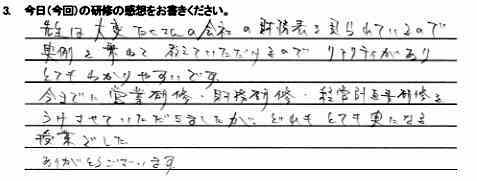 3. 今日(今回)の研修の感想をお書きください。
先生は大変たくさんの会社の財務表を見られているので
実例を兼ねて教えていただけるのでリアリティがあり
とてもわかりやすいです。
今までに営業研修・財務研修・経営計画書研修を
うけさせていただきましたが、どれもとても実になる
授業でした
ありがとうございます